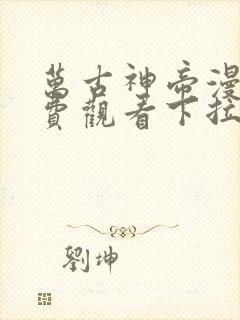 萬古神帝漫
費觀看下拉
劉坤